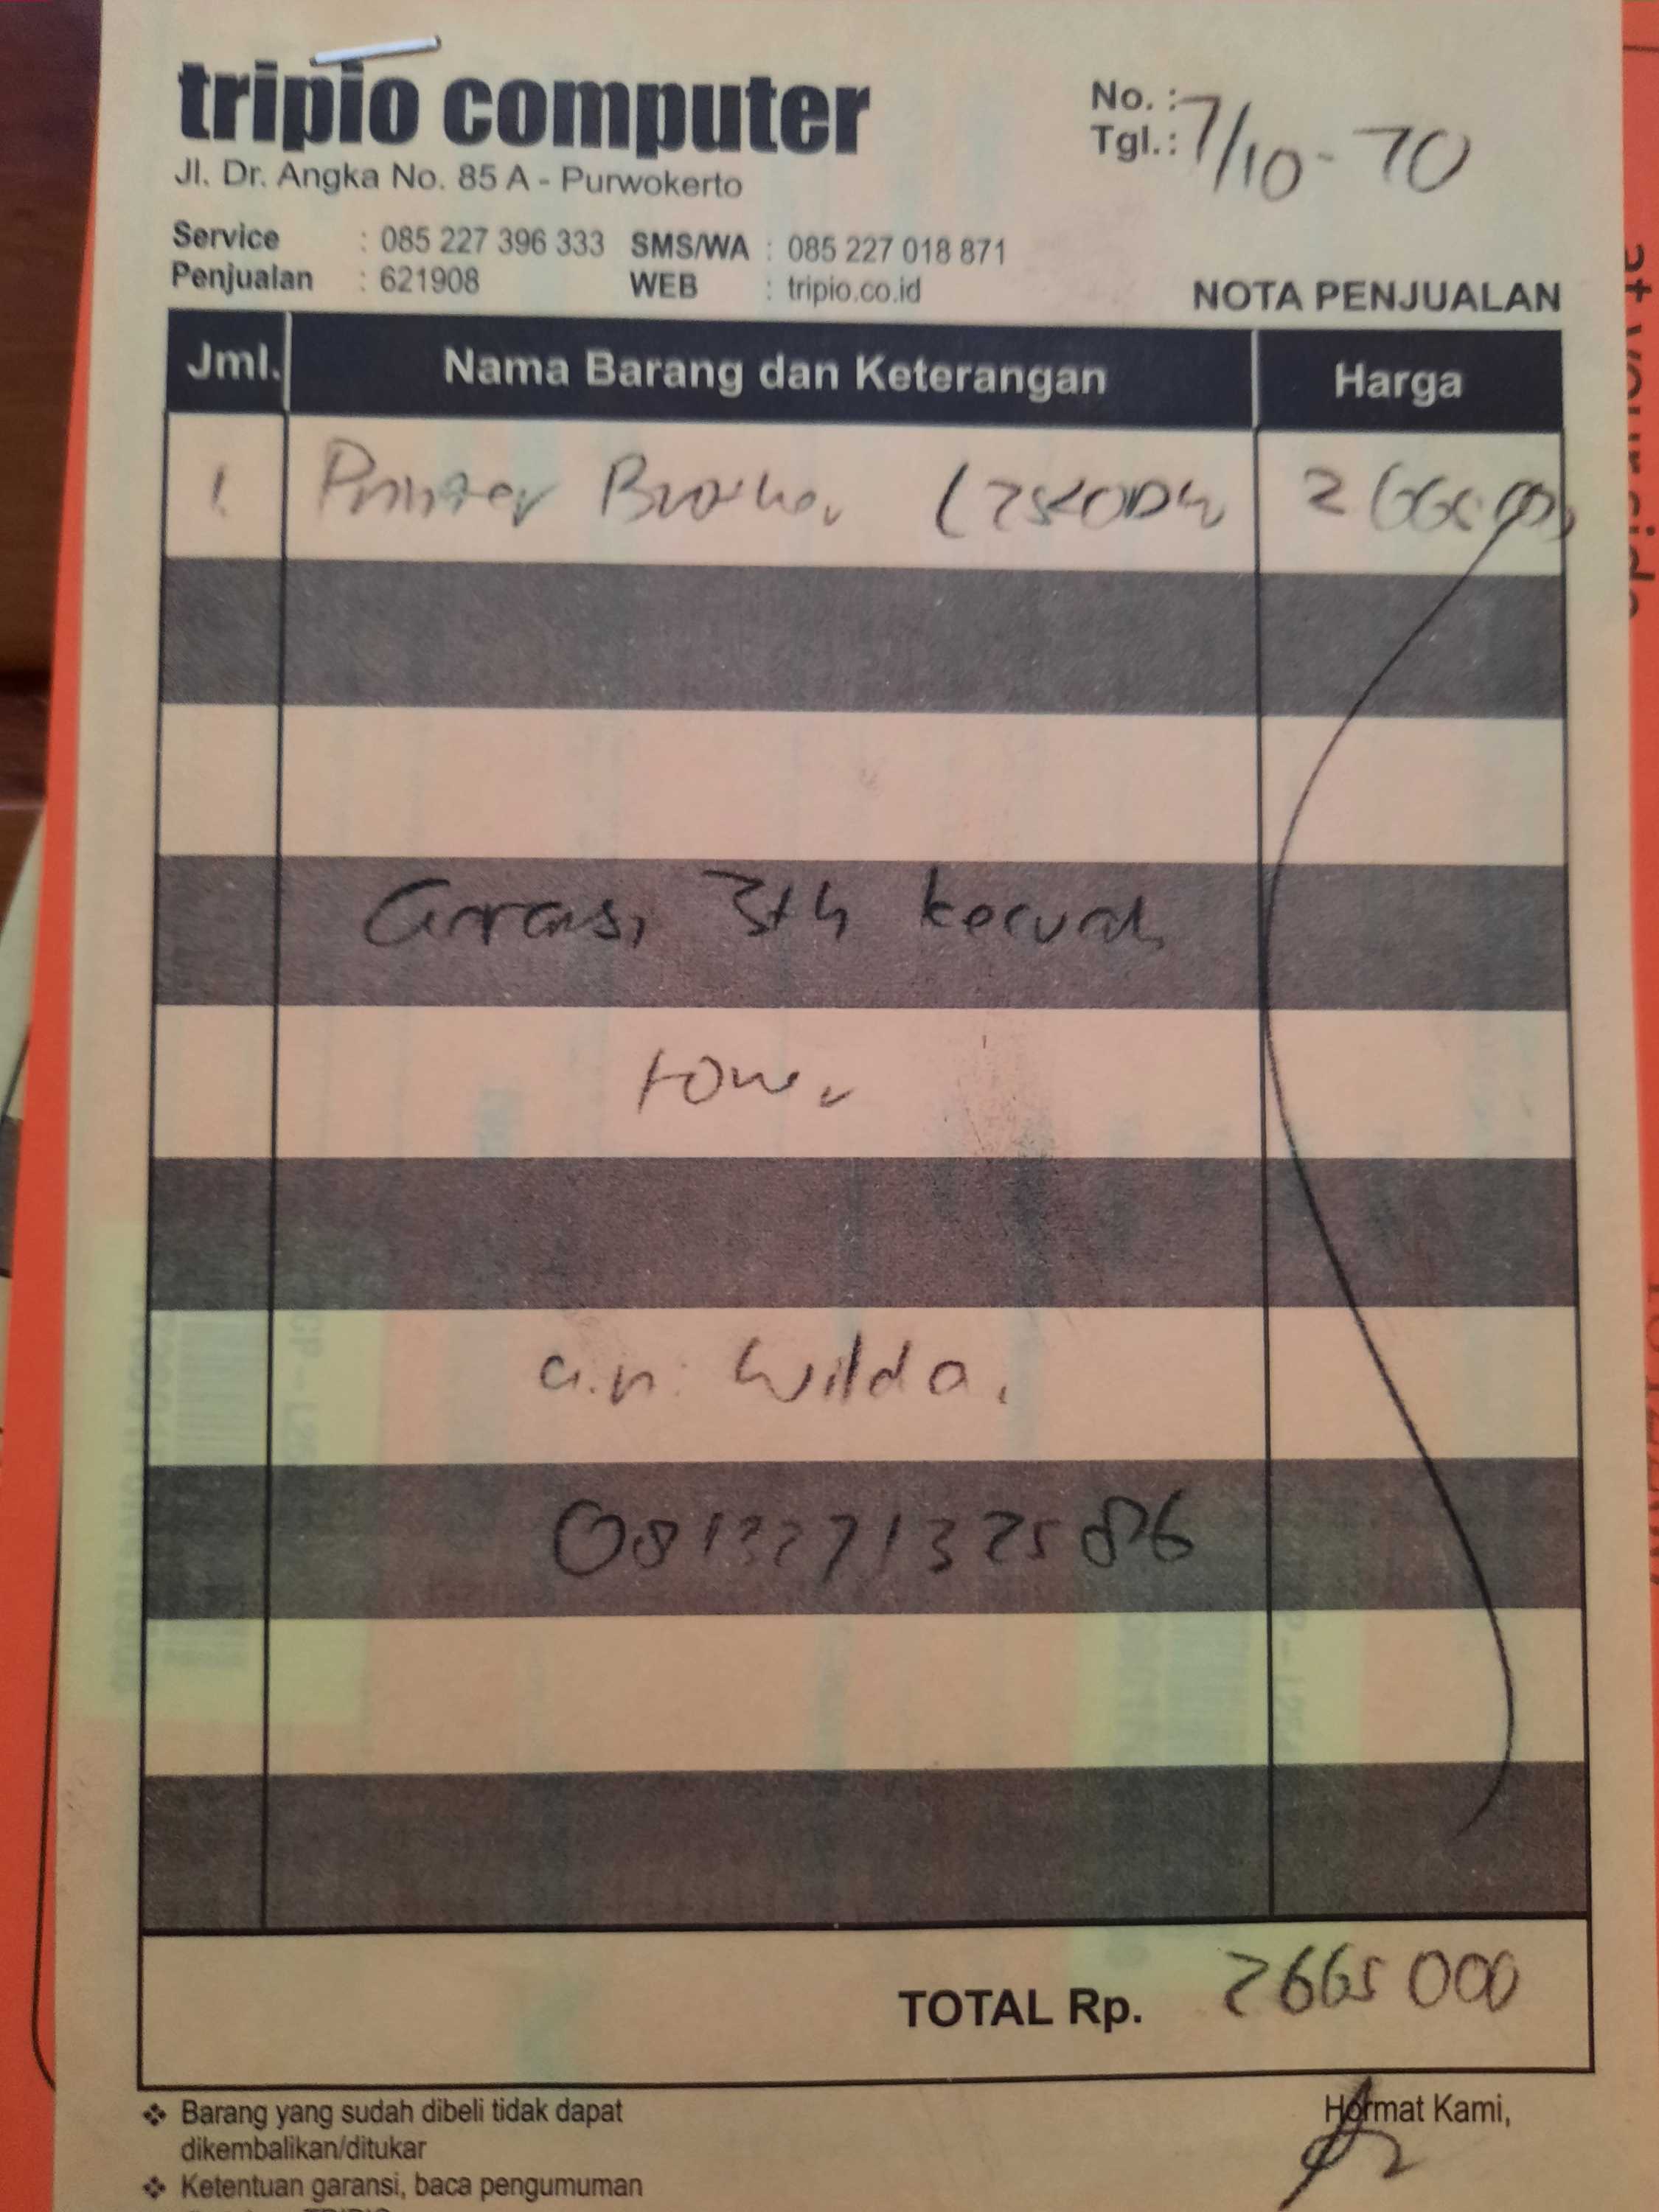 tripio computer
Jl. Dr. Angka No. 85 A - Purwokerto
No. :
Tgl.: 7/10-20
Service : 085 227 396 333 SMS/WA : 085 227 018 871
Penjualan : 621908 WEB : tripio.co.id
NOTA PENJUALAN
Jml. Nama Barang dan Keterangan Harga
1. Printer Brother 2665000
Garansi 3th kecuali
toner
a.n. Wilda.
TOTAL Rp. 2665 000
❖ Barang yang sudah dibeli tidak dapat
dikembalikan/ditukar
❖ Ketentuan garansi, baca pengumuman
Hormat Kami,